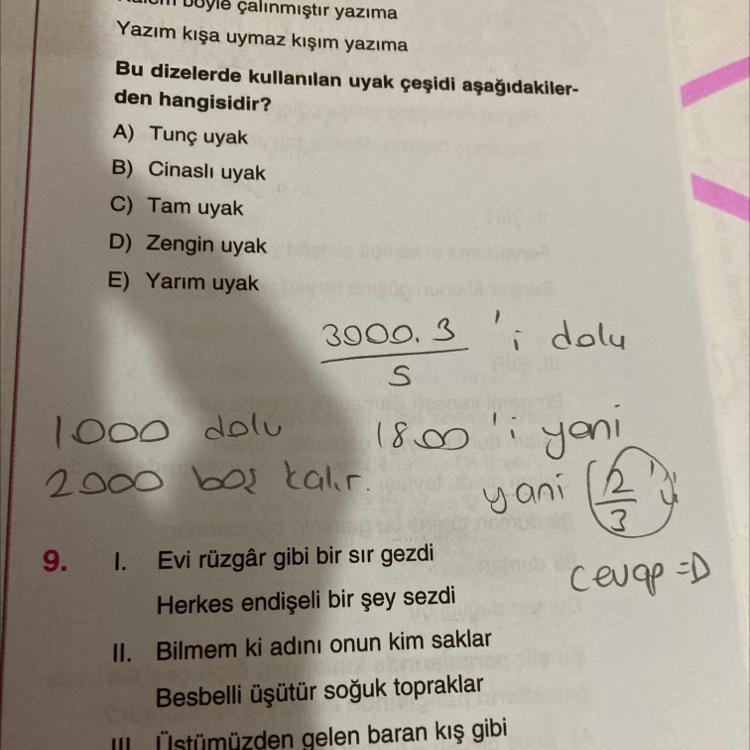 böyle çalınmıştır yazıma
Yazım kışa uymaz kışım yazıma
Bu dizelerde kullanılan uyak çeşidi aşağıdakiler-
den hangisidir?
A) Tunç uyak
B) Cinaslı uyak
C) Tam uyak
D) Zengin uyak
E) Yarım uyak
3000.3 'i dolu
5
1000 dolu 1800 'i yani
2000 boş kalır. yani 2 'ü
3
cevap = D
9. I. Evi rüzgâr gibi bir sır gezdi
Herkes endişeli bir şey sezdi
II. Bilmem ki adını onun kim saklar
Besbelli üşütür soğuk topraklar
III. Üstümüzden gelen baran kış gibi